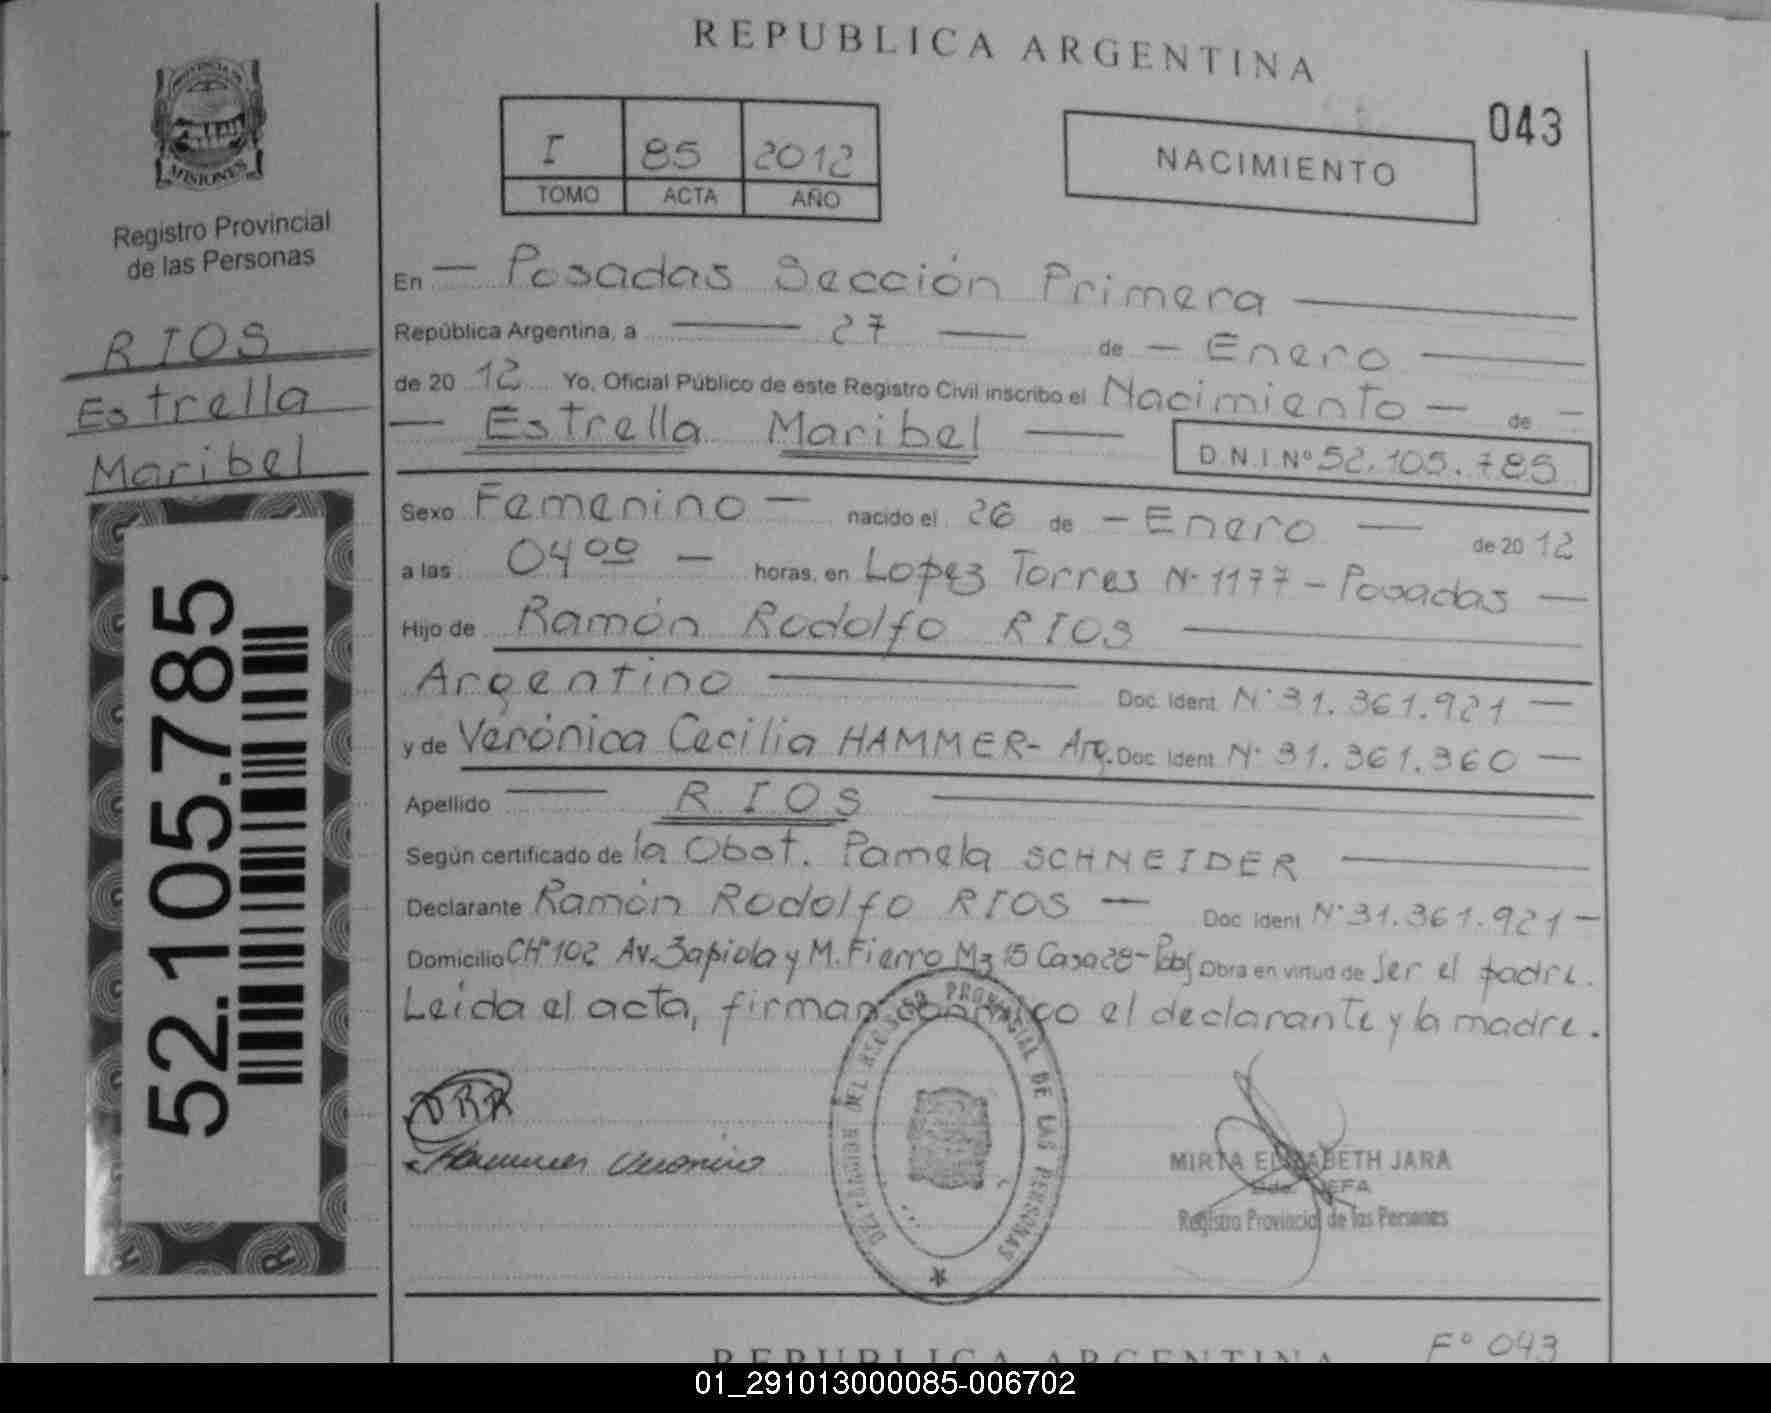 REPUBLICA ARGENTINA
043
PROVINCIA DE
MISIONES
Registro Provincial
de las Personas
RIOS
Estrella
Maribel
52.105.785
I 85 2012
TOMO ACTA AÑO
NACIMIENTO
En — Posadas Sección Primera —
República Argentina, a — 27 — de — Enero —
de 20 12 Yo, Oficial Público de este Registro Civil inscribo el Nacimiento — de —
— Estrella Maribel — D.N.I. Nº 52.105.785
Sexo Femenino — nacido el 26 de — Enero — de 20 12
a las 04 00 — horas, en Lopez Torres Nº 1177 – Posadas —
Hijo de Ramón Rodolfo RIOS —
Argentino — Doc. Ident. Nº 31.361.921 —
y de Verónica Cecilia HAMMER- Arg. Doc. Ident. Nº 31.361.360 —
Apellido — RIOS —
Según certificado de la Obst. Pamela SCHNEIDER —
Declarante Ramón Rodolfo RIOS — Doc. Ident. Nº 31.361.921 —
Domicilio CHº102 Av. Zapiola y M. Fierro Mz 15 Casa 28 - Obra en virtud de Ser el padre.
Leida el acta, firman conmigo el declarante y la madre.
RRR
Hammer Veronica
DEL REGISTRO PROVINCIAL DE LAS PERSONAS
MIRTA ELIZABETH JARA
JEFA
Registro Provincial de las Personas
REPUBLICA ARGENTINA
Fº 043
01_291013000085-006702